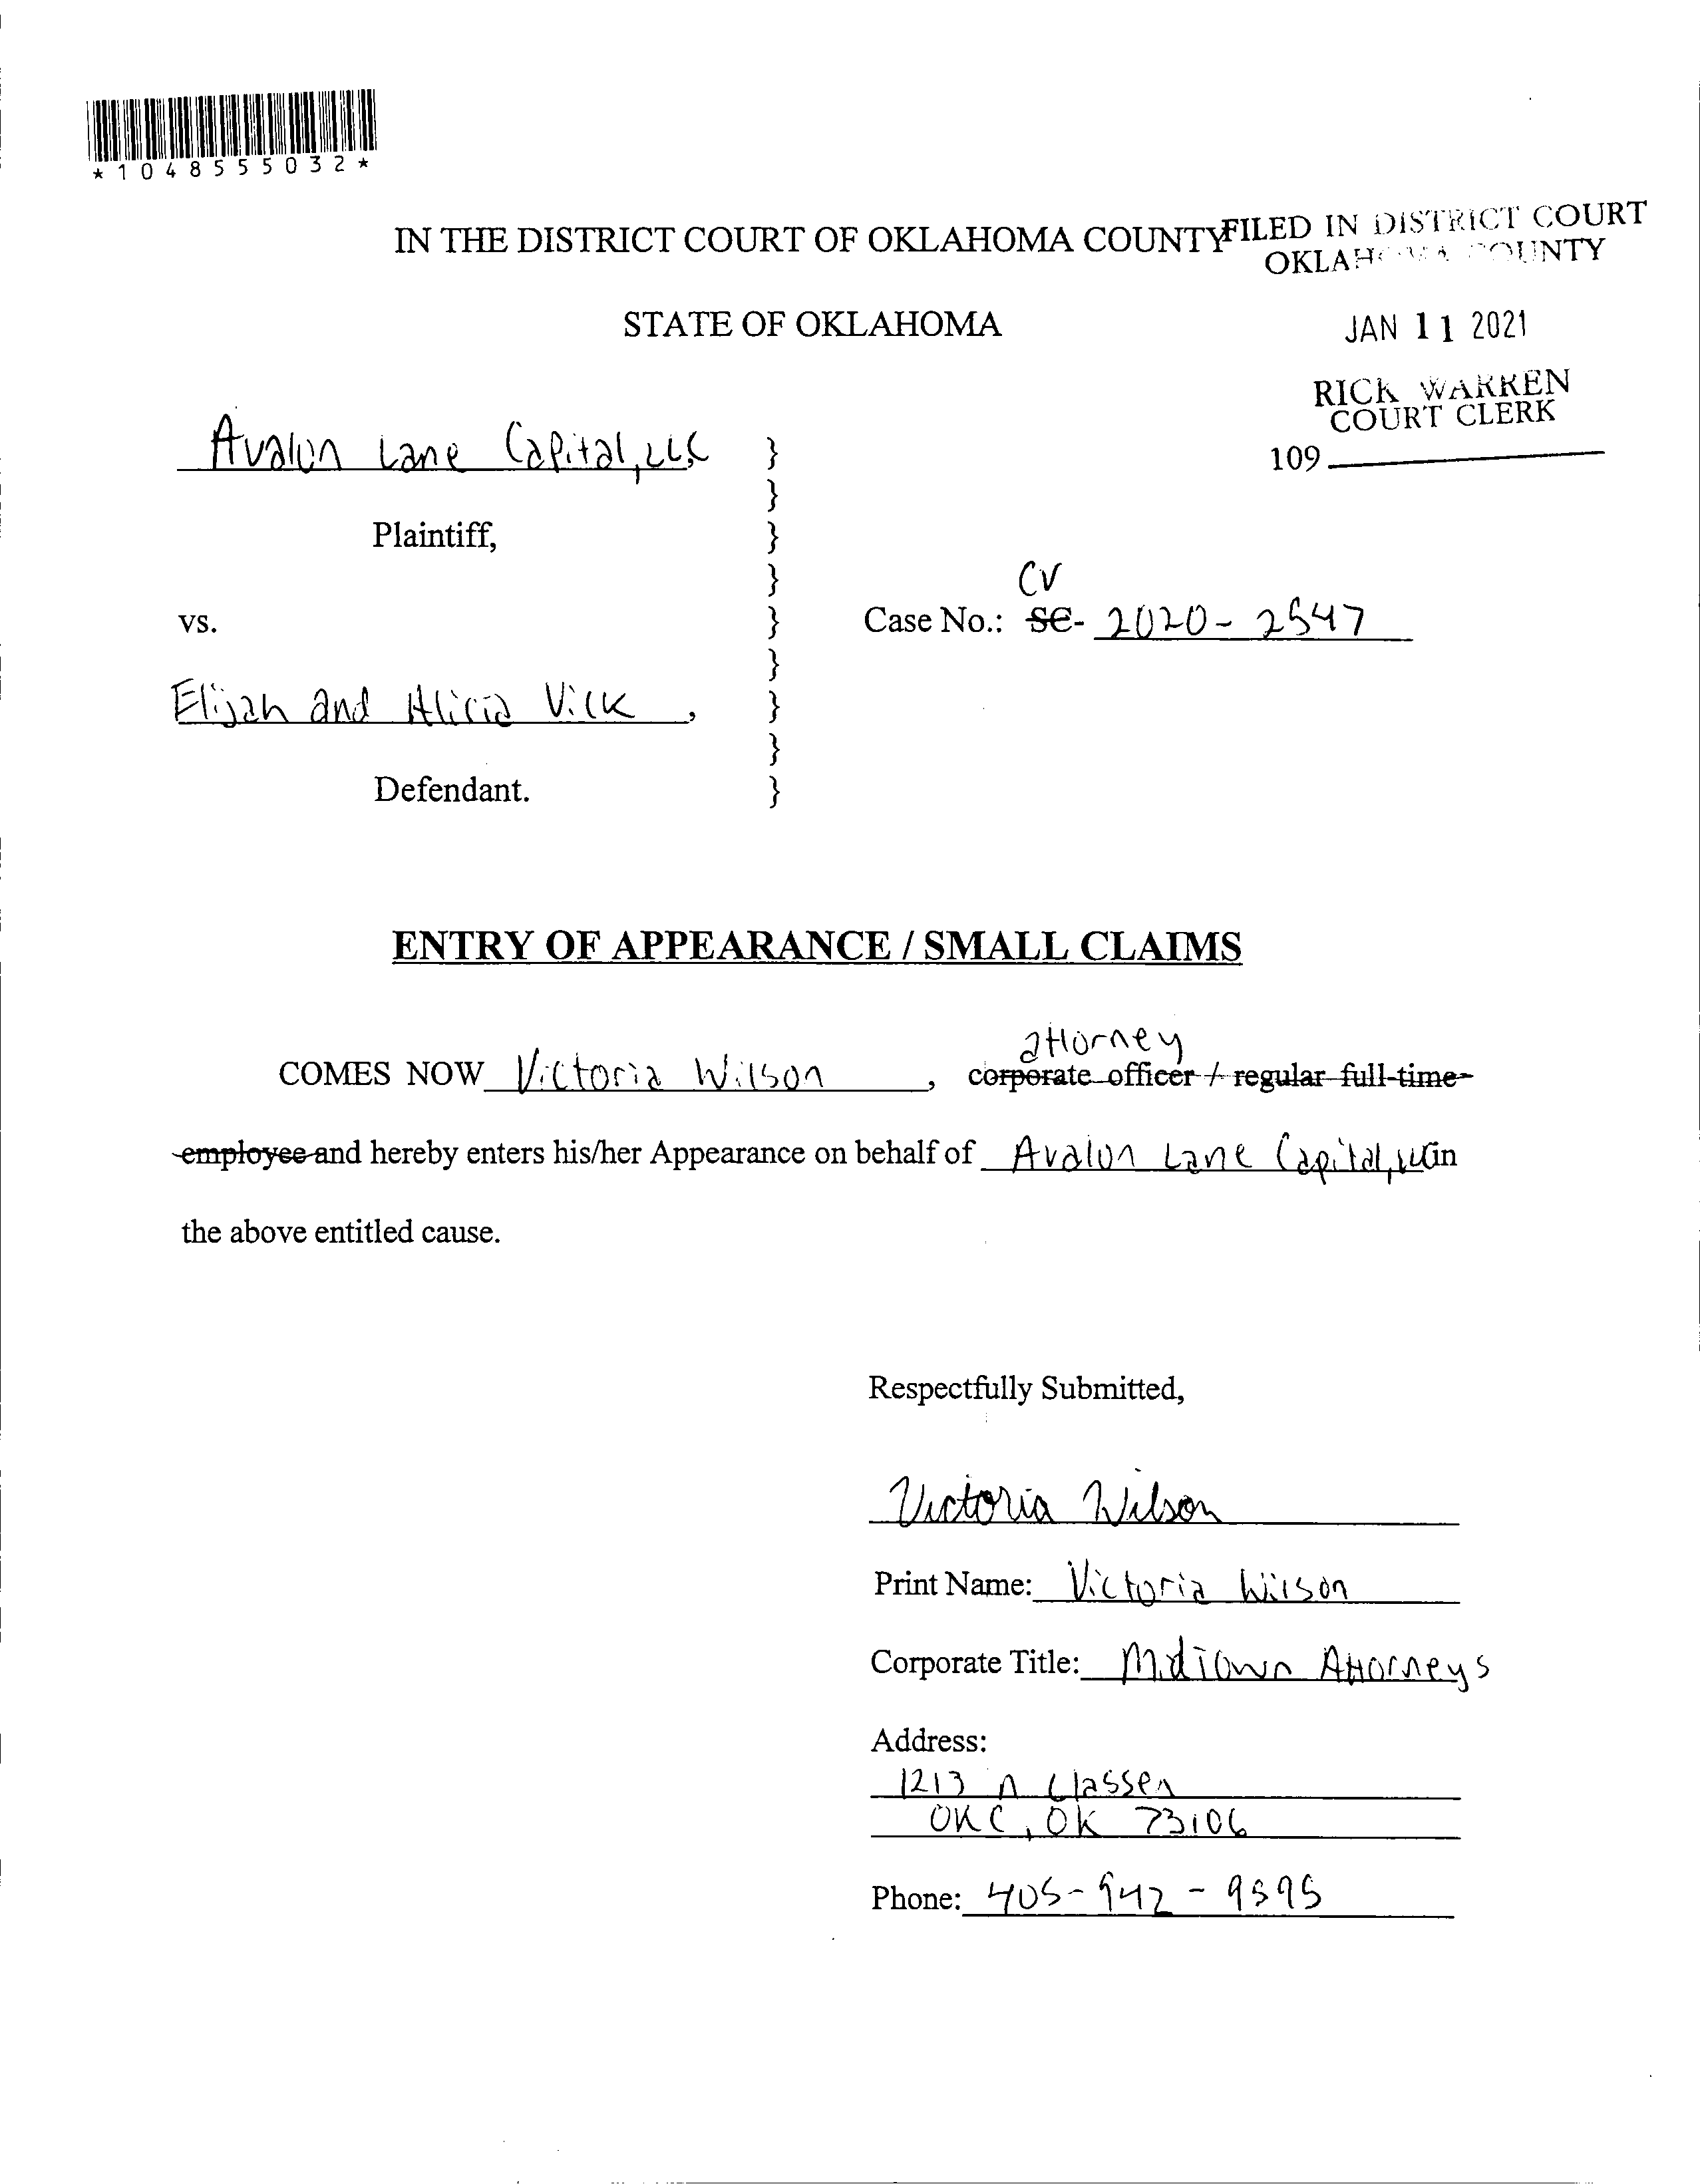 *1048555032*
IN THE DISTRICT COURT OF OKLAHOMA COUNTY
FILED IN DISTRICT COURT
OKLAHOMA COUNTY
STATE OF OKLAHOMA
JAN 11 2021
RICK WARREN
COURT CLERK
109
Avalon Lane Capital, LLC }
}
Plaintiff, }
}
CV
vs. } Case No.: SC- 2020-2547
}
Elijah and Alicia Vick , }
}
Defendant. }
ENTRY OF APPEARANCE / SMALL CLAIMS
attorney
COMES NOW Victoria Wilson , corporate officer / regular full-time
employee and hereby enters his/her Appearance on behalf of Avalon Lane Capital, LLC in
the above entitled cause.
Respectfully Submitted,
Victoria Wilson
Print Name: Victoria Wilson
Corporate Title: Midtown Attorneys
Address:
1213 N Classen
OKC, OK 73106
Phone: 405-942-9595